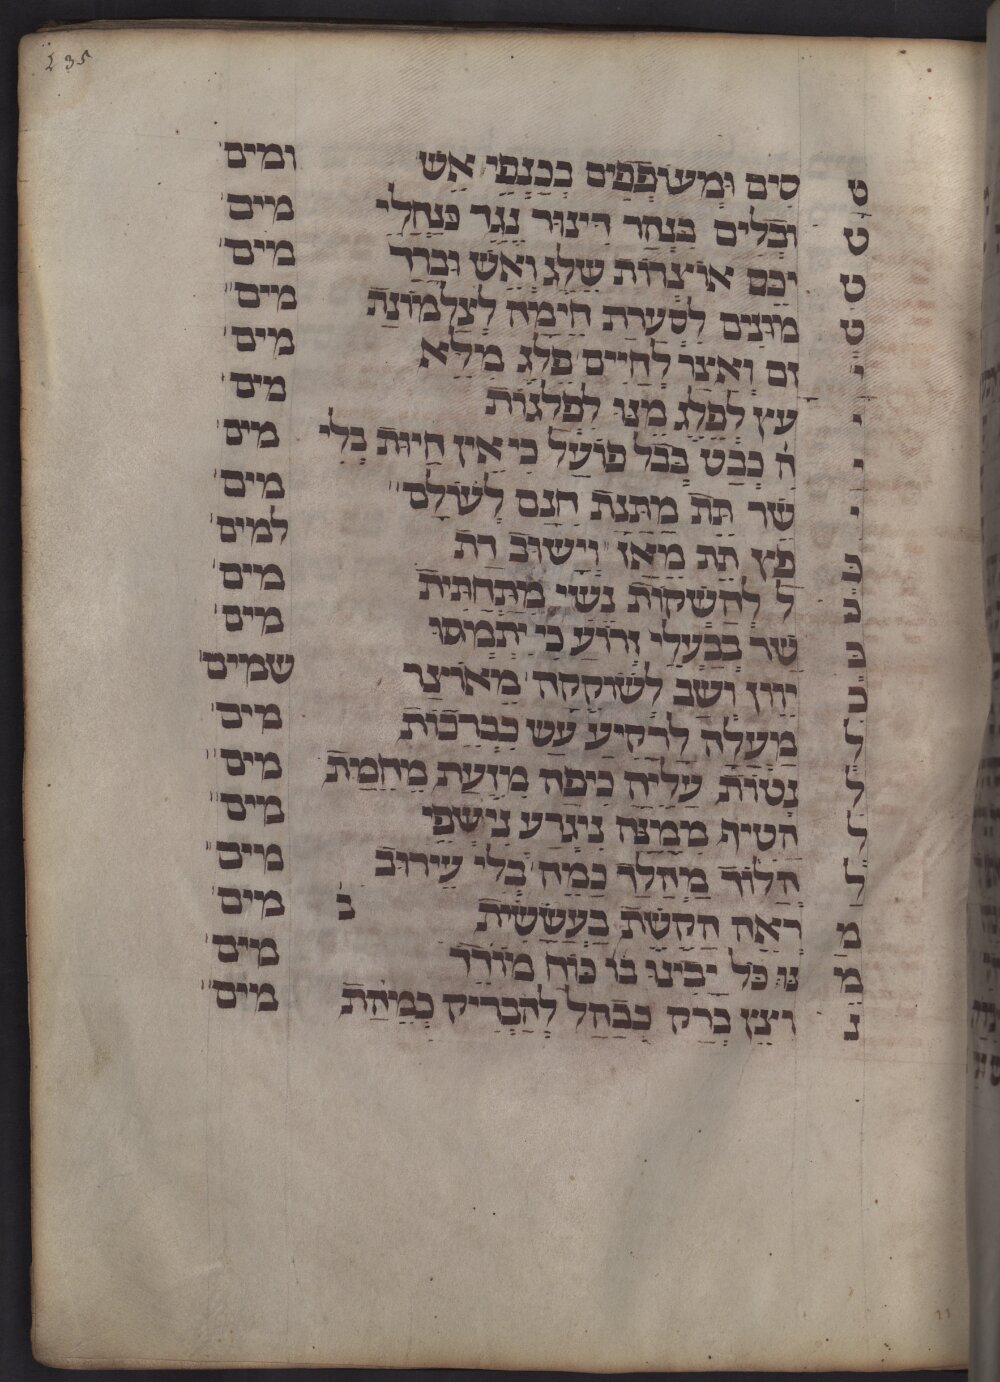 235
ט סִים וּמְעוֹפְפִים כְּכַנְפֵי אֵשׁ ומים
ט וּבְלִים בִּנְהַר דִּינוּר נֶגֶר כְּנַחֲלֵי מים
ט יכס אוֹצְרוֹת שֶׁלֶג וְאֵשׁ וּבָרָד מים
ט מוּנִים לְסַעֲרַת חֵימָה לְצַלְמוֹנָה מים
י זם וְאֵצֶר לְחַיִּים פֶּלֶג מָלֵא מים
י עץ לְפַלֵּג מֶנּוּ לִפְלַגּוֹת מים
י ה כְּבַט בְּכָל פּוֹעַל כִּי אֵין חַיּוּת בְּלִי מים
י שר תֵּת מַתְּנַת חִנָּם לָעוֹלָם מים
כ פץ תֵּת מֵאָז וְיָשׁוּב רַת למים
כ ל לְהַשְׁקוֹת נְשִׁי מִתַּחְתִּית מים
כ שר בְּבַעֲלֵי זְרוֹעַ כִּי יִתְמָסוּ מים
כ יוון וְשָׁב לְשׁוֹקֵקָה מֵאוֹצַר שמים
ל מַעְלָה לָרָקִיעַ עָשׁ כִּבְרֵכוֹת מים
ל נְטוֹת עָלֶיהָ כִּיפָּה מְזַעַת מֵחֲמַת מים
ל הטיף מִמֶּנָּה נִיגְרַע נִישְׁפֵּי מים
ל הֲלוֹךְ מַהֲלַךְ כַּמֶּה בְּלִי עֵירוּב מים
מ רְאֵה הַקֶּשֶׁת בַּעֲשָׁשִׁית ב מים
מ נּוּ כָּל יָבִינוּ בּוֹ כּוֹחַ מוֹרַד מים
נ ויצץ בָּרָק כְּבַחַל לְהַבְרִיק כְּמִיחַת מים